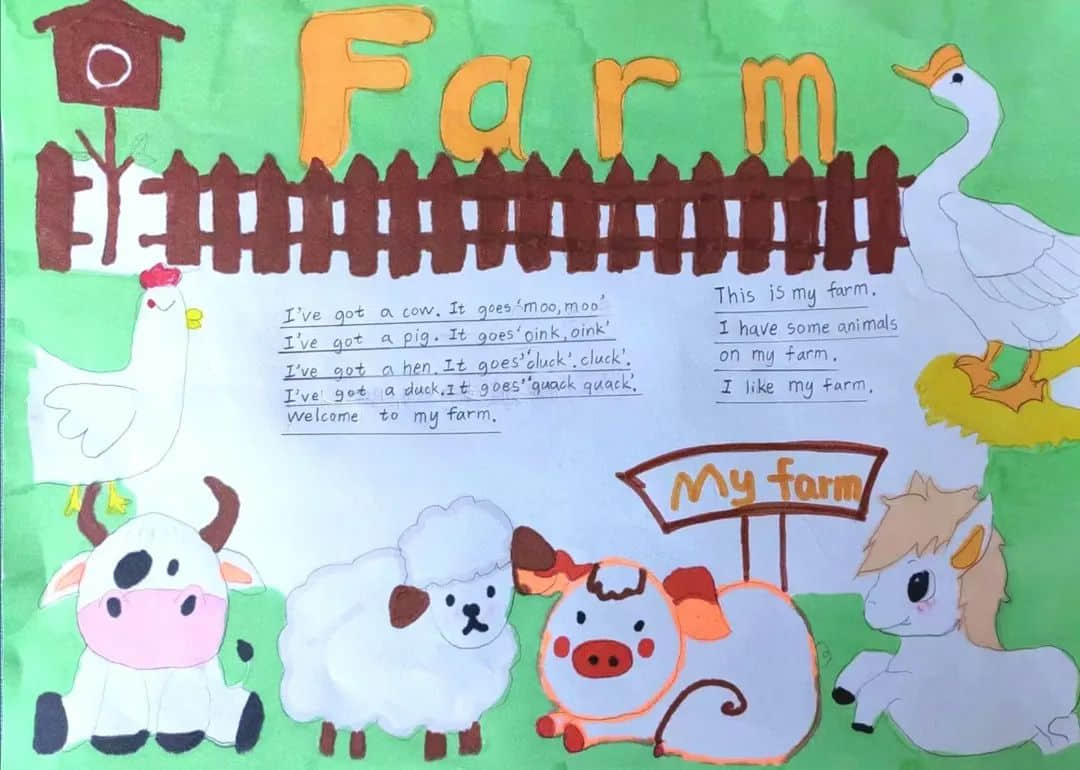 Farm
I've got a cow. It goes 'moo, moo'
I've got a pig. It goes 'oink, oink'
I've got a hen. It goes 'cluck'. cluck'.
I've got a duck. It goes 'quack quack'.
Welcome to my farm.
This is my farm.
I have some animals
on my farm.
I like my farm.
My farm